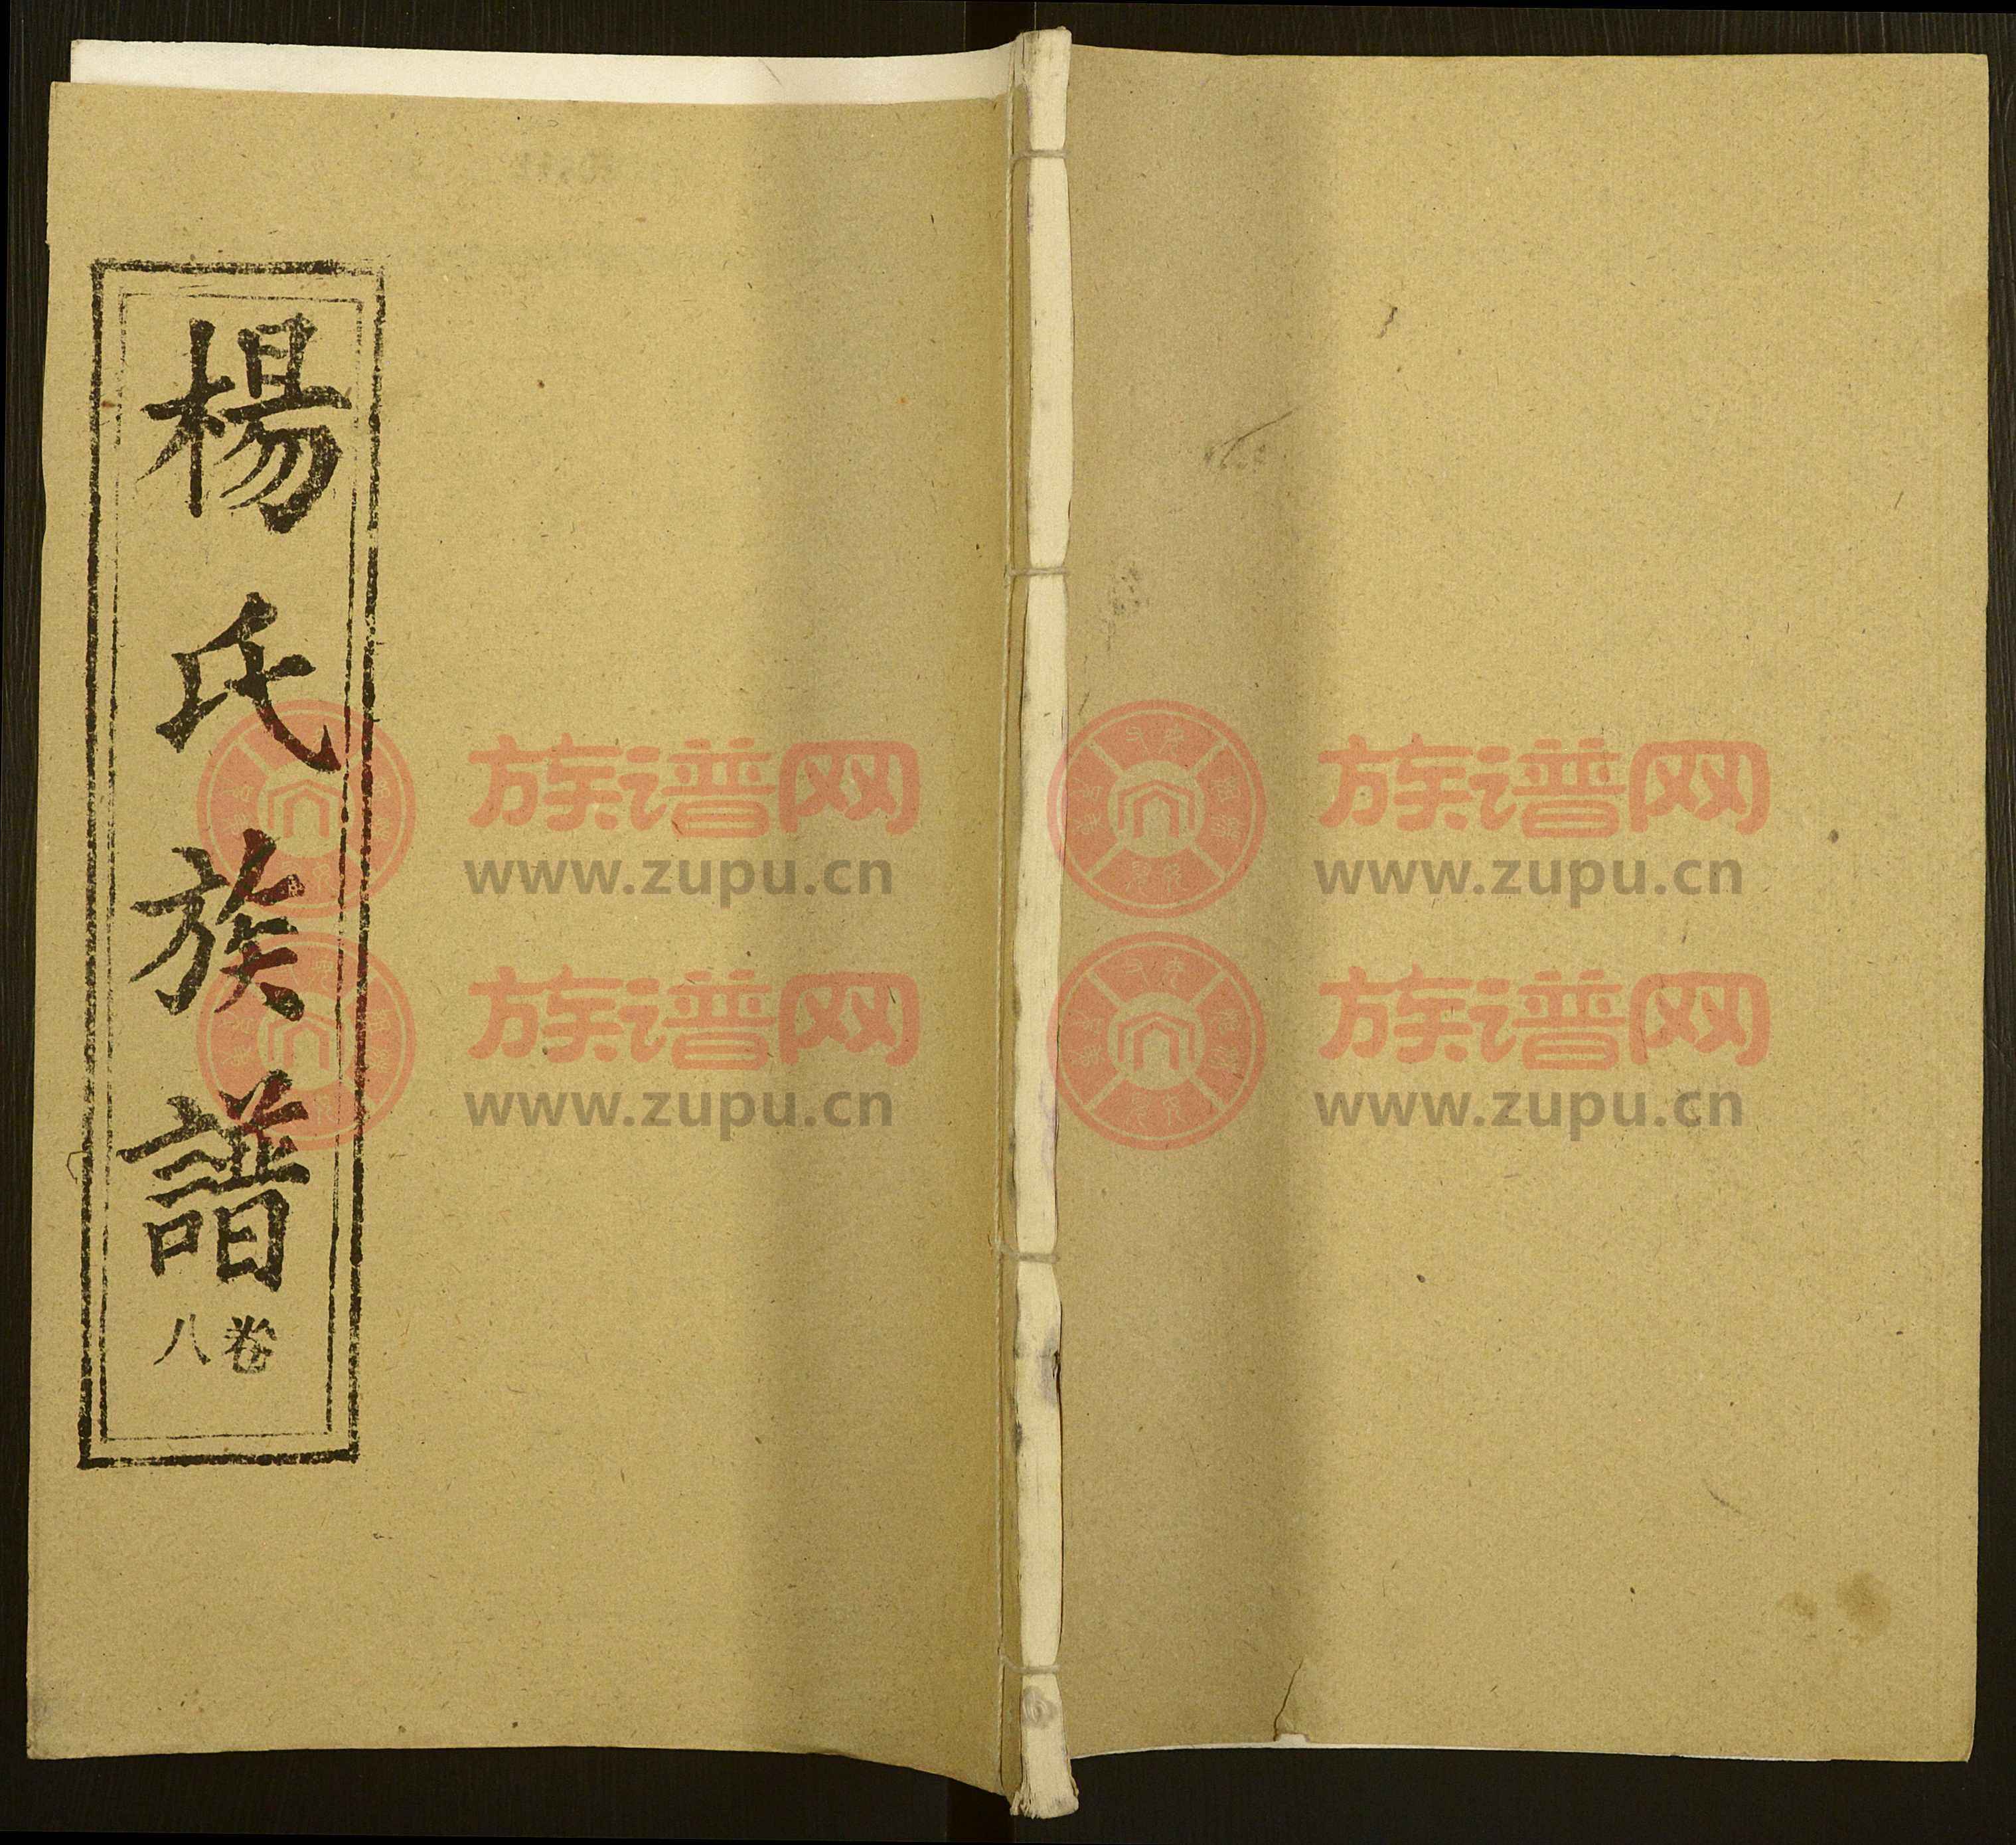 楊氏族譜
卷八
族谱网
www.zupu.cn
族谱网
www.zupu.cn
族谱网
www.zupu.cn
族谱网
www.zupu.cn